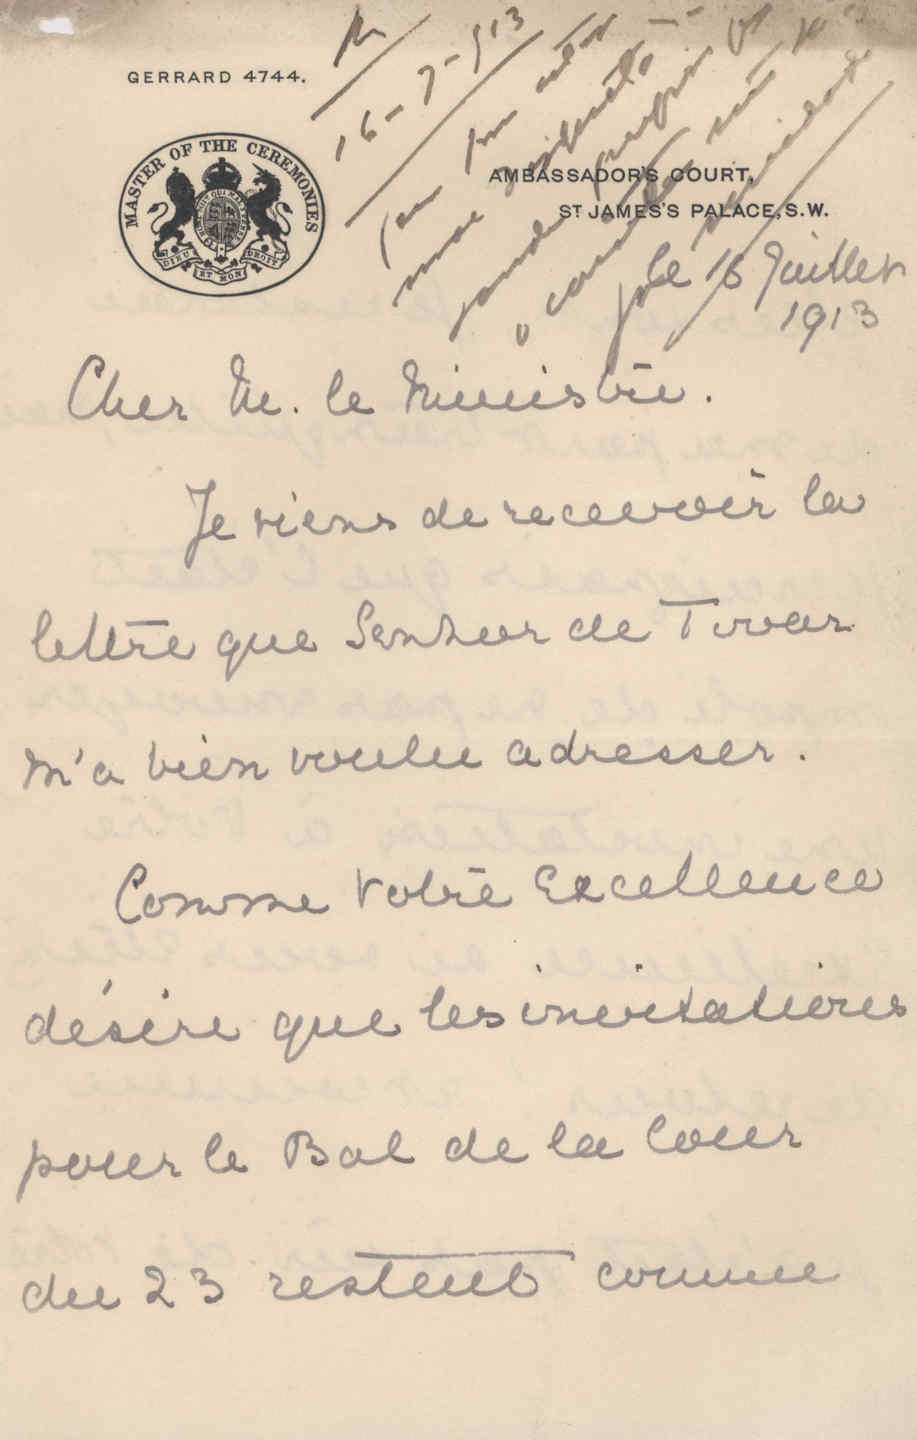 GERRARD 4744.
MASTER OF THE CEREMONIES
DIEU ET MON DROIT
16-7-913
AMBASSADOR'S COURT,
ST JAMES'S PALACE, S.W.
le 16 Juillet
1913
Cher M. le Ministre.
Je viens de recevoir la
lettre que Senhor de Tovar
m'a bien voulu adresser.
Comme Votre Excellence
désire que les invitations
pour le Bal de la Cour
du 23 restent comme